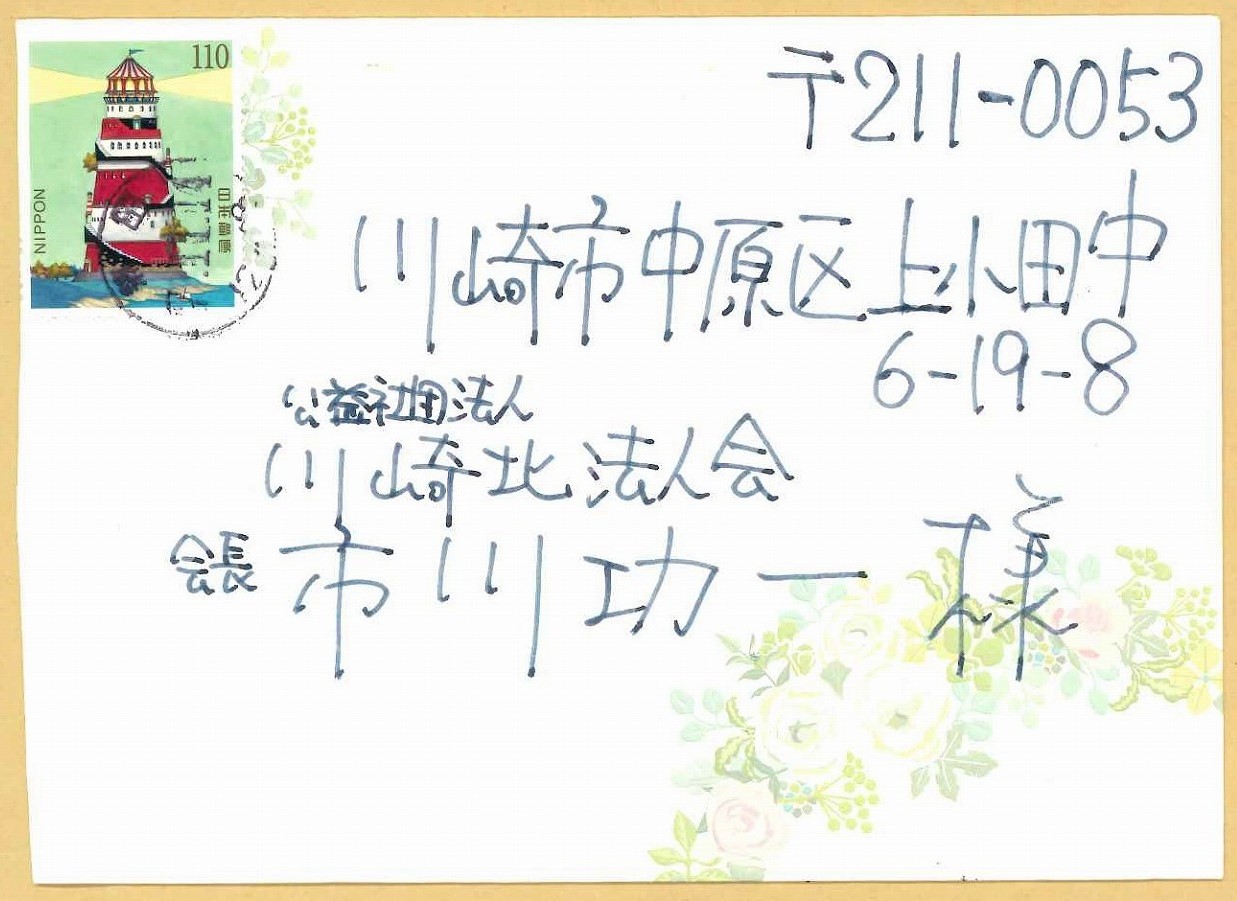 110
NIPPON
日本郵便
〒211-0053
川崎市中原区上小田中
6-19-8
公益社団法人
川崎北法人会
会長 市川功一 様